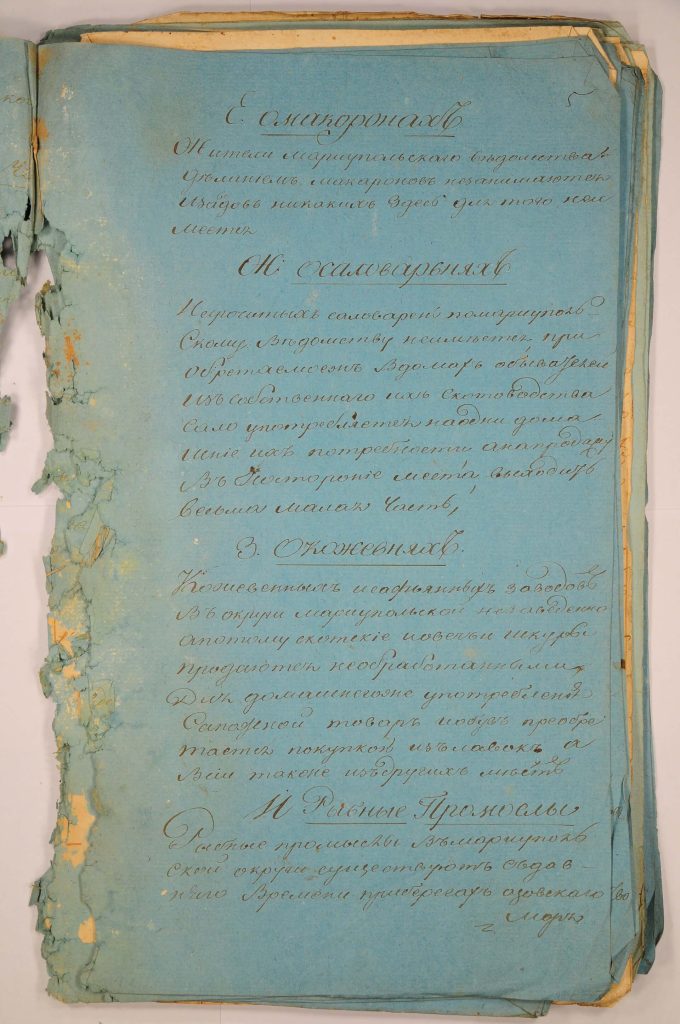 5
Е. омакоронахъ
Жители мариупольскаго вѣдомства
дѣланіемъ макароновъ незанимаются
изаводовъ никакихъ здесь для того нем
меется
Ж: Осаловарьняхъ
Непростыхъ саловарень помариуполь-
скому вѣдомству неимеется при
обретаемоежъ вдомахъ обывателей
изъ собственнаго ихъ скотоводства
сало употребляется наодни дома
шніе ихъ потребности анапродажу
въ посторонніе места выходитъ
весьма малая часть,
З. Окожевняхъ.
Кожевенныхъ исафьянныхъ заводовъ
въ округи мариупольской незаведенно
апотому скотскіе иовечьи шкуры
продаются необработанными
Для домашнегоже употребленія
сапожной товаръ иобувь преобре
тается покупкою изъ лавокъ а
всіи также издругихъ местъ
И Рыбные Промыслы
Рыбные промыслы въмариуполь
ской округи существуютъ съдав-
няго времени прибрегахъ азовскаго
моря